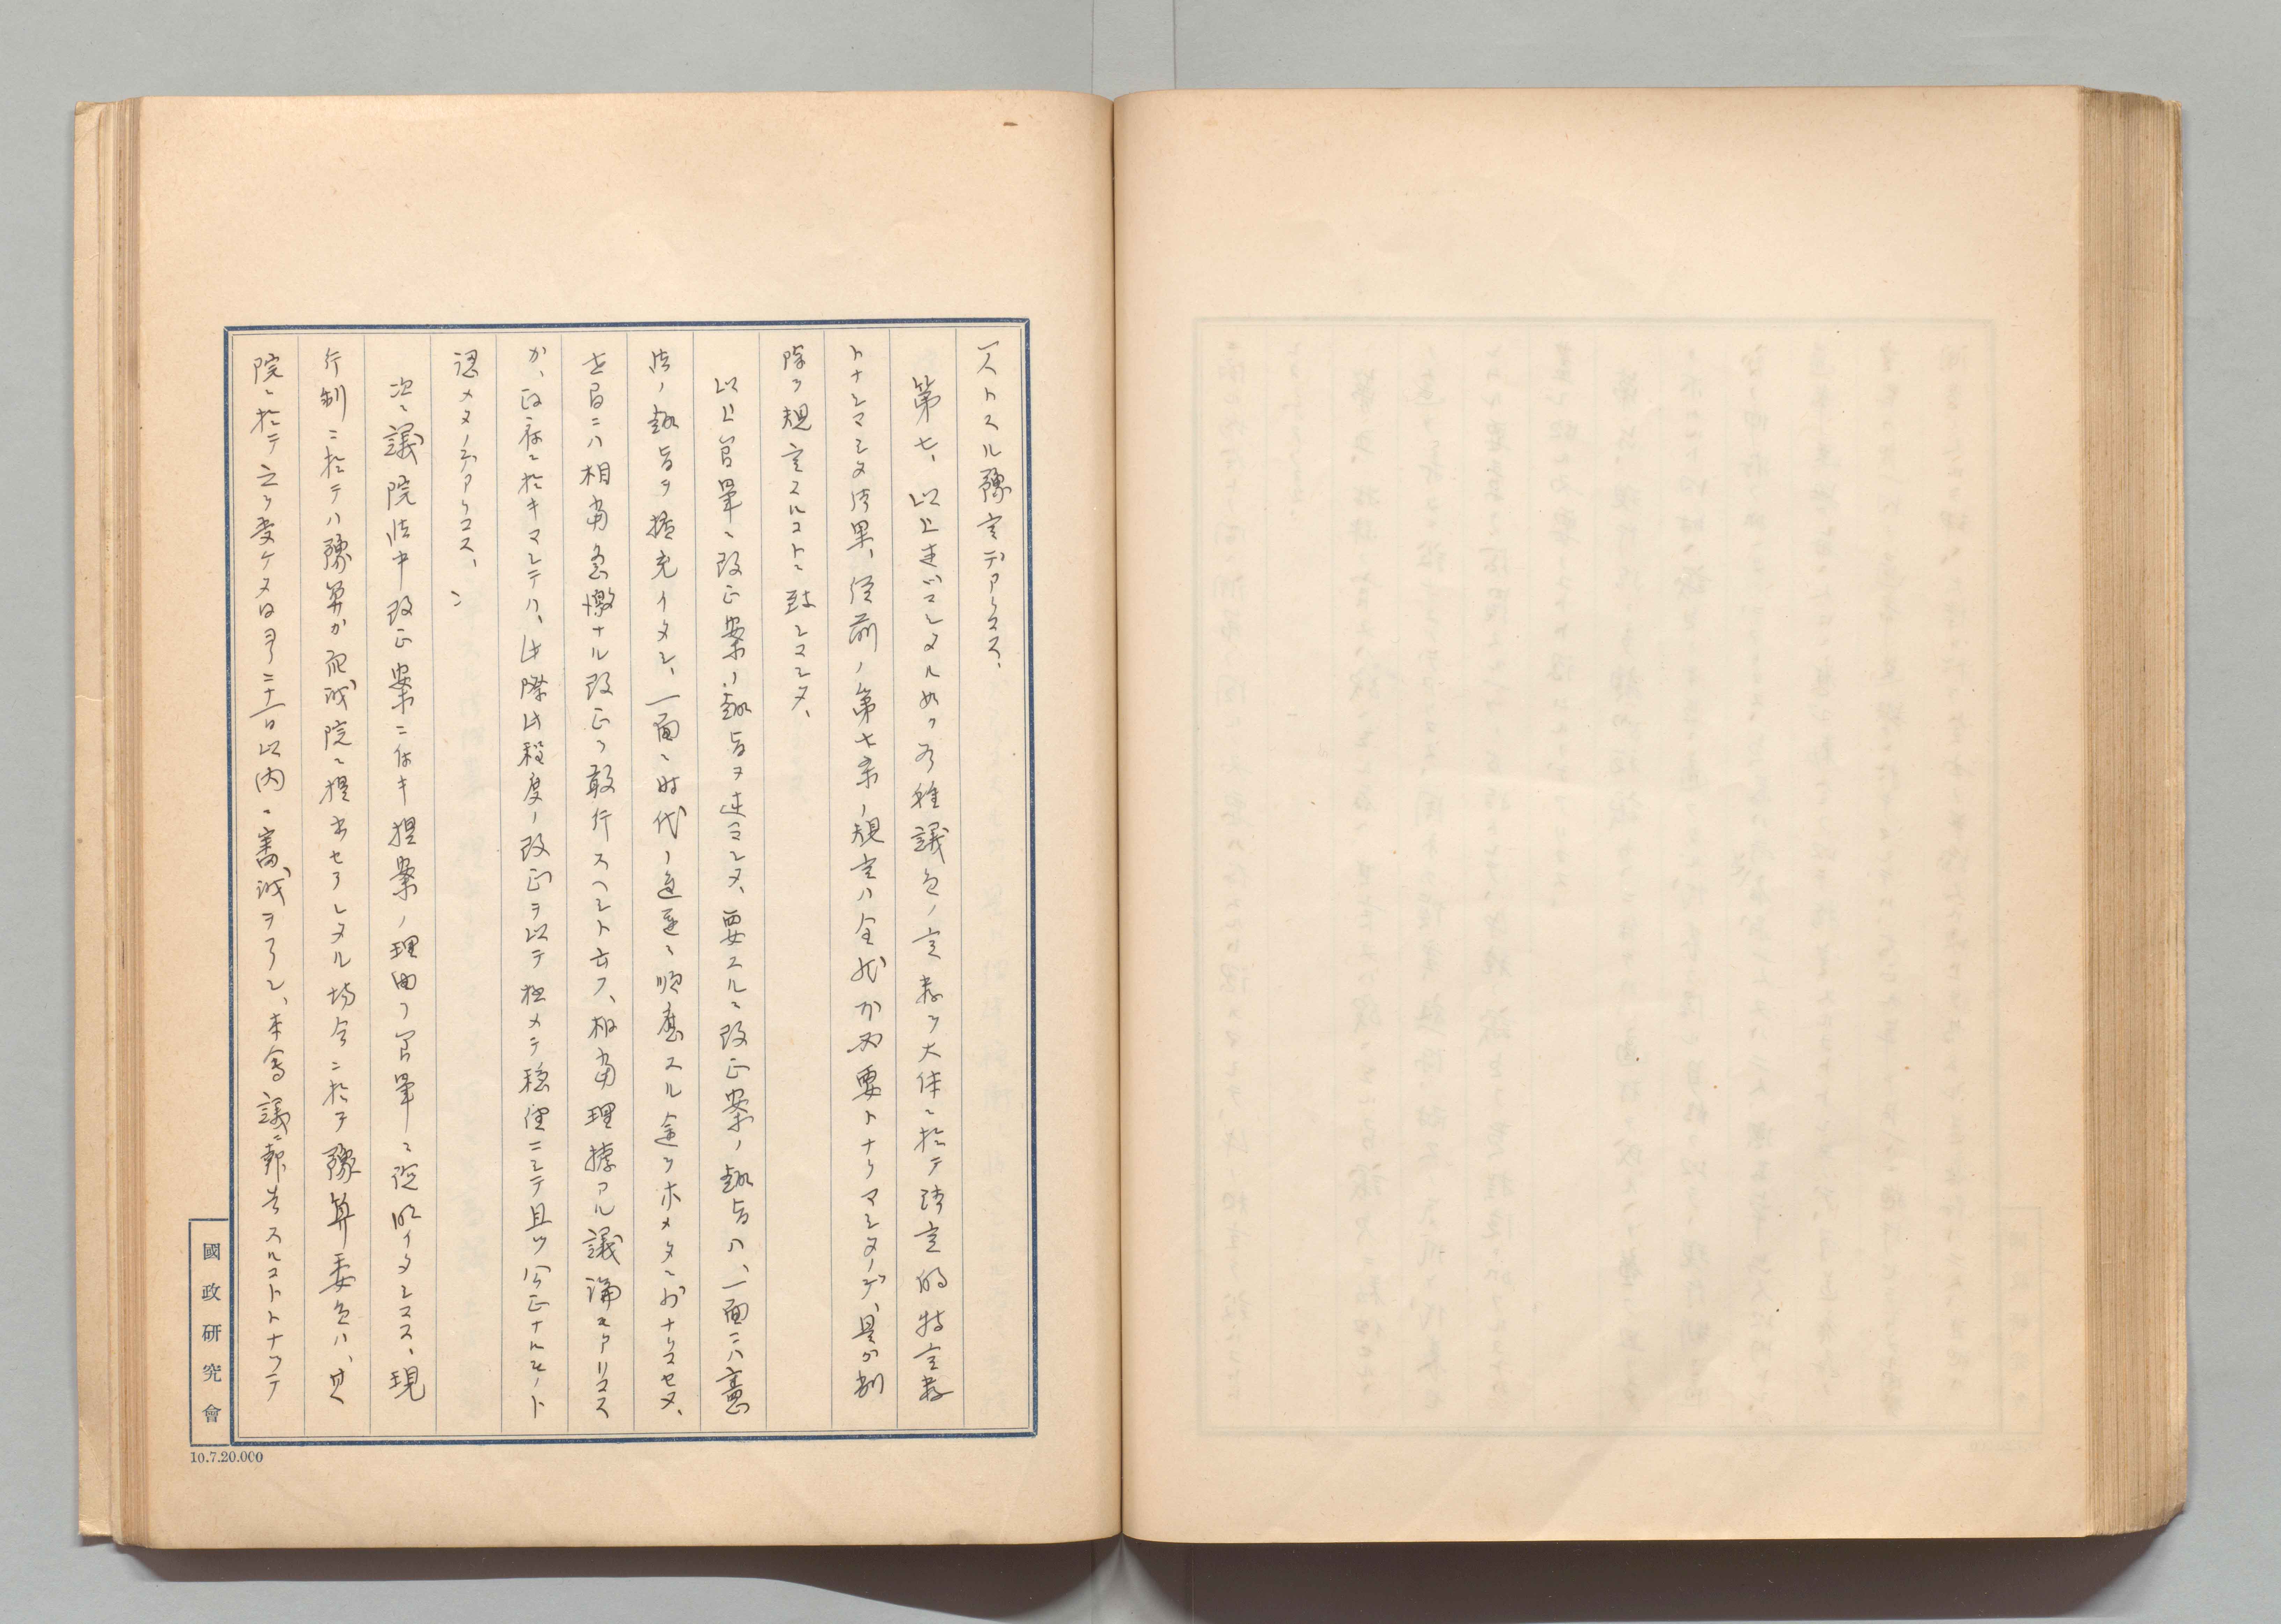 一ストスル豫定デアリマス、
第七、以上述ベマシタル如ク各種議員ノ定数ヲ大体ニ於テ確定的特定数
トナシマシタ結果、従前ノ第七条ノ規定ハ全然不必要トナリマシタノデ、是ガ削
除ヲ規定スルコトニ致シマシタ、
以上簡単ニ改正案ノ趣旨ヲ述ヘマシタ、要スルニ改正案ノ趣旨ハ、一面ニハ憲
法ノ趣旨ヲ拡充イタシ、一面ニ時代ノ進運ニ順應スル途ヲ求メタニ外ナリマセヌ、
世局ニハ相当急激ナル改正ヲ敢行スヘシト云フ、相当理據アル議論モアリマス
カ、政府ニ於キマシテハ、此際此程度ノ改正ヲ以テ極メテ穏健ニシテ且ツ公正ナルモノト
認メタノデアリマス、
次ニ議院法中改正案ニ付キ提案ノ理由ヲ簡単ニ説明イタシマス、現
行制ニ於テハ豫算カ衆議院ニ提出セラレタル場合ニ於テ豫算委員ハ、其
院ニ於テ之ヲ受ケタ日ヨリ二十一日以内ニ審議ヲ了シ、本會議ニ報告スルコトトナツテ
國政研究會
10.7.20.000